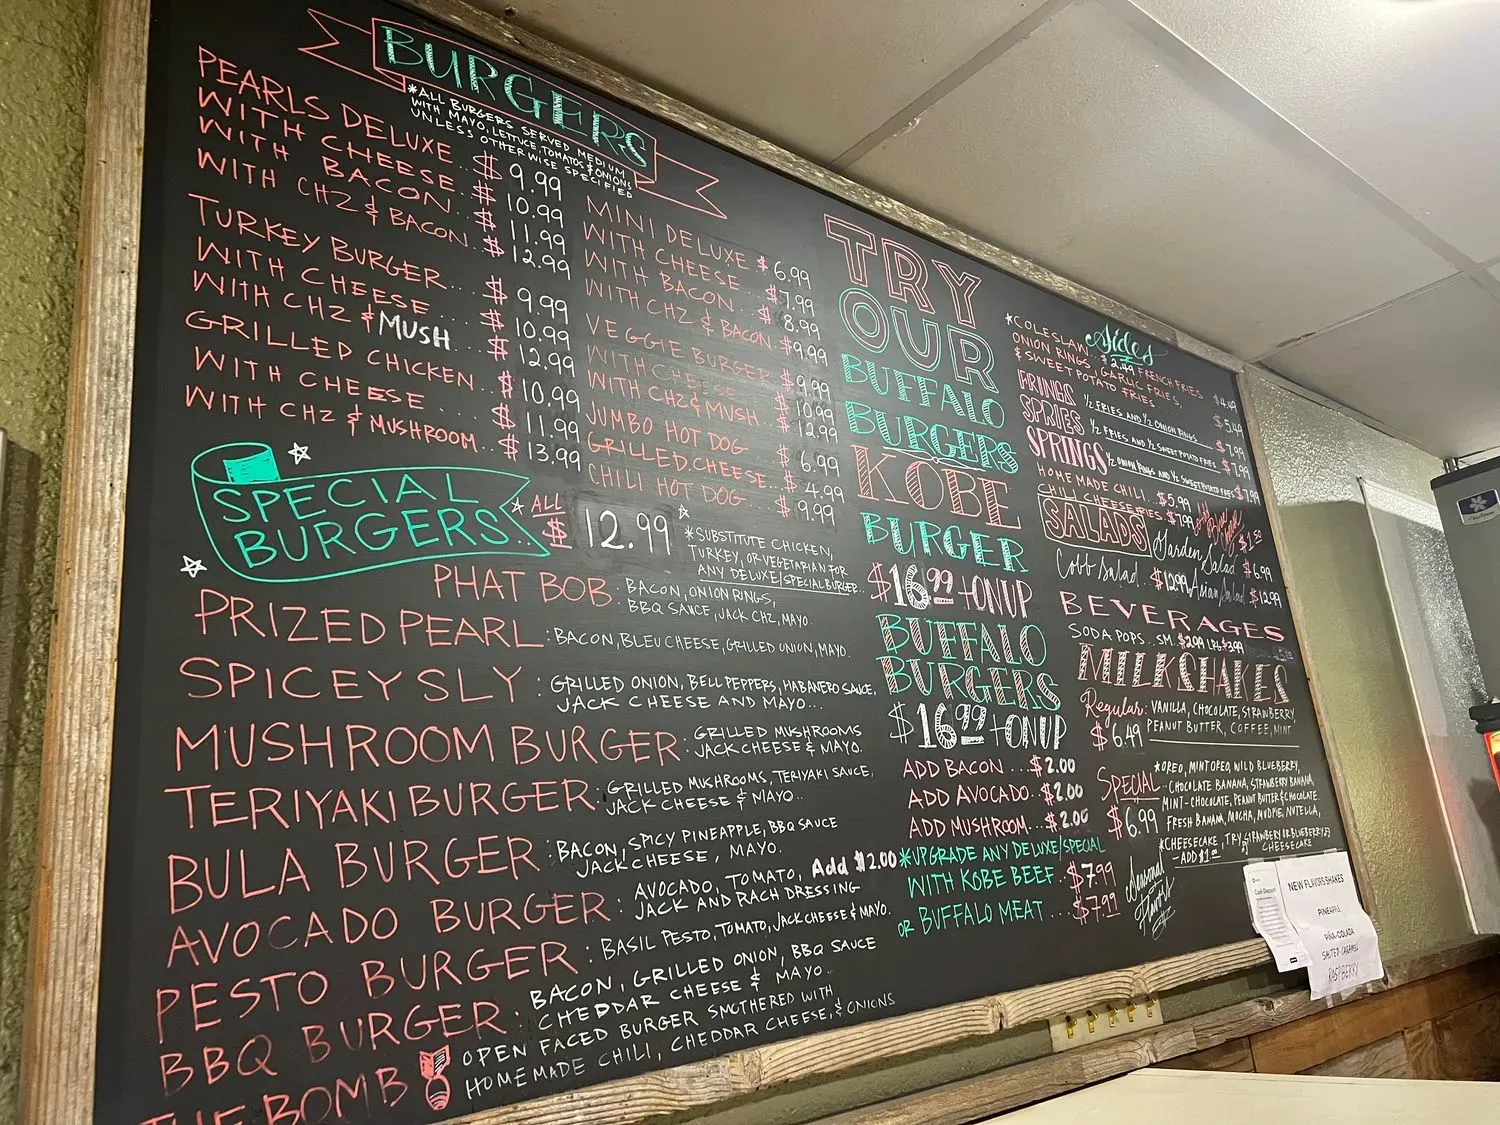 BURGERS
*ALL BURGERS SERVED MEDIUM
WITH MAYO, LETTUCE, TOMATOS & ONIONS
UNLESS OTHERWISE SPECIFIED
PEARLS DELUXE.. $ 9.99
WITH CHEESE.. $ 10.99
WITH BACON... $ 11.99
WITH CHZ & BACON.. $ 12.99
TURKEY BURGER... $ 9.99
WITH CHEESE... $ 10.99
WITH CHZ & MUSH $ 12.99
GRILLED CHICKEN.. $ 10.99
WITH CHEESE.... $ 11.99
WITH CHZ & MUSHROOM.. $ 13.99
MINI DELUXE $ 6.99
WITH CHEESE.. $ 7.99
WITH BACON... $ 8.99
WITH CHZ & BACON. $ 9.99
VEGGIE BURGER $ 9.99
WITH CHEESE 10.99
WITH CHZ & MUSH.. 12.99
JUMBO HOT DOG $ 6.99
GRILLED CHEESE... $ 4.99
CHILI HOT DOG $ 9.99
SPECIAL
BURGERS...
*ALL
$ 12.99
*SUBSTITUTE CHICKEN,
TURKEY, OR VEGETARIAN FOR
ANY DELUXE/SPECIAL BURGER..
PHAT BOB: BACON, ONION RINGS,
BBQ SAUCE, JACK CHZ, MAYO.
PRIZED PEARL: BACON, BLEU CHEESE, GRILLED ONION, MAYO.
SPICEY SLY GRILLED ONION, BELL PEPPERS, HABANERO SAUCE,
JACK CHEESE AND MAYO...
MUSHROOM BURGER: GRILLED MUSHROOMS
JACK CHEESE & MAYO.
TERIYAKI BURGER: GRILLED MUSHROOMS, TERIYAKI SAUCE,
JACK CHEESE & MAYO..
BULA BURGER: BACON, SPICY PINEAPPLE, BBQ SAUCE
JACK CHEESE, MAYO.
AVOCADO BURGER: AVOCADO, TOMATO, Add $2.00
JACK AND RACH DRESSING
PESTO BURGER: BASIL PESTO, TOMATO, JACK CHEESE & MAYO.
BBQ BURGER: BACON, GRILLED ONION, BBQ SAUCE
CHEDDAR CHEESE & MAYO..
THE BOMB OPEN FACED BURGER SMOTHERED WITH
HOMEMADE CHILI, CHEDDAR CHEESE, & ONIONS
TRY
OUR
BUFFALO
BURGERS
KOBE
BURGER
$16.99 + ON UP
BUFFALO
BURGERS
$16.99 + ON UP
ADD BACON ... $2.00
ADD AVOCADO.. $2.00
ADD MUSHROOM... $2.00
*UPGRADE ANY DELUXE/SPECIAL
WITH KOBE BEEF.. $7.99
OR BUFFALO MEAT ... $7.99
Sides
*COLESLAW.. $2.49 FRENCH FRIES
ONION RINGS, GARLIC FRIES,
& SWEET POTATO FRIES $4.49
FRINGS 1/2 FRIES AND 1/2 ONION RINGS $5.49
SPRIES 1/2 FRIES AND 1/2 SWEET POTATO FRIES. $7.99
SPRINGS 1/2 ONION RINGS AND 1/2 SWEET POTATO FRIES $7.99
HOME MADE CHILI.. $5.99
CHILI CHEESE FRIES. $7.99
$1.50
SALADS Garden Salad $6.99
Cobb Salad.. $12.99 Asian Salad.. $12.99
BEVERAGES
SODA POPS.. SM. $2.99 LRG $3.99
MILKSHAKES
Regular: VANILLA, CHOCOLATE, STRAWBERRY,
$6.49 PEANUT BUTTER, COFFEE, MINT
Special.. *OREO, MINT OREO, WILD BLUEBERRY,
CHOCOLATE BANANA, STRAWBERRY BANANA,
$6.99 MINT-CHOCOLATE, PEANUT BUTTER & CHOCOLATE
FRESH BANANA, MOCHA, NUTELLA,
*CHEESECAKE, TRY STRAWBERRY OR BLUEBERRY
-ADD $1.00 CHEESECAKE
Seasonal
Flavors
Cash Discount
NEW FLAVORS SHAKES
PINEAPPLE
PINA-COLADA
SALTED-CARAMEL
RASPBERRY